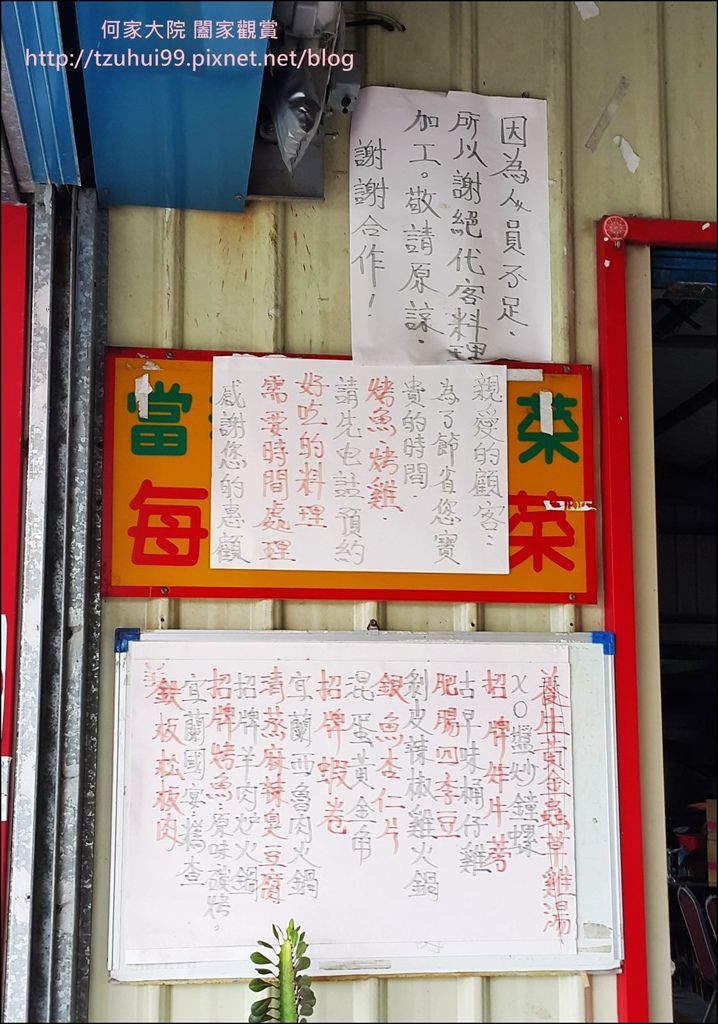 何家大院 闔家觀賞
http://tzuhui99.pixnet.net/blog
因為人員不足、
所以謝絕代客料理
加工。敬請原諒、
謝謝合作！
當
菜
每
菜
親愛的顧客：
為了節省您寶
貴的時間、
烤魚、烤雞、
請先電話預約
好吃的料理
需要時間處理
感謝您的惠顧
養生黃金蟲草雞湯
XO醬炒鐘螺
招牌蚌蒡
古早味桶仔雞
肥腸四季豆
剝皮辣椒雞火鍋
銀魚杏仁片
混蛋黃金角
招牌蝦卷
宜蘭西魯肉火鍋
清蒸麻辣臭豆腐
招牌羊肉炉火鍋
招牌烤魚：原味碳烤。
宜蘭國宴：糕查
鉄板松板肉